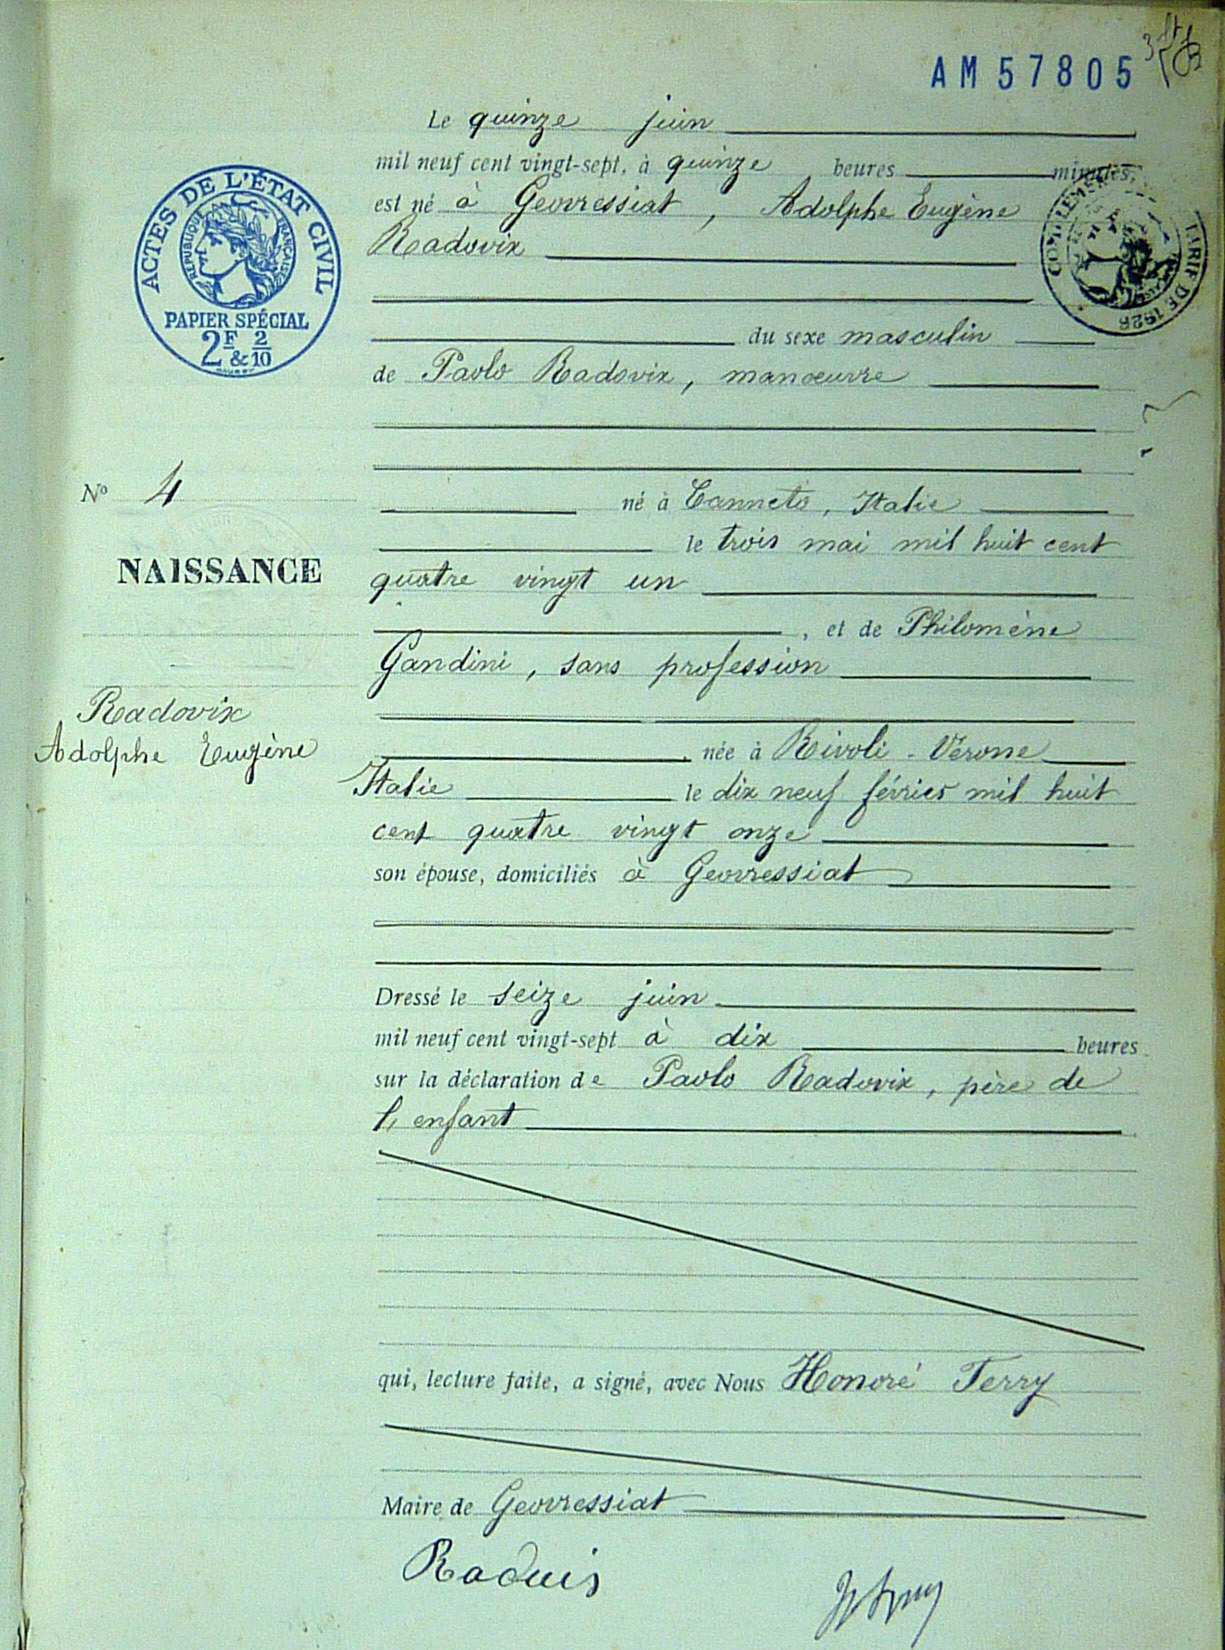 AM 57805
Le quinze juin
mil neuf cent vingt-sept, à quinze heures minutes,
est né à Geovressiat, Adolphe Eugène
Radovix
ACTES DE L'ÉTAT CIVIL
RÉPUBLIQUE FRANÇAISE
PAPIER SPÉCIAL
2F & 2/10
TARIF DE 1926
du sexe masculin
de Paolo Radovix, manœuvre
No 4
né à Canneto, Italie
le trois mai mil huit cent
NAISSANCE
quatre vingt un
, et de Philomène
Gandini, sans profession
Radovix
Adolphe Eugène
, née à Rivoli - Vérone
Italie le dix neuf février mil huit
cent quatre vingt onze
son épouse, domiciliés à Geovressiat
Dressé le seize juin
mil neuf cent vingt-sept à dix heures
sur la déclaration de Paolo Radovix, père de
l'enfant
qui, lecture faite, a signé, avec Nous Honoré Ferry
Maire de Geovressiat